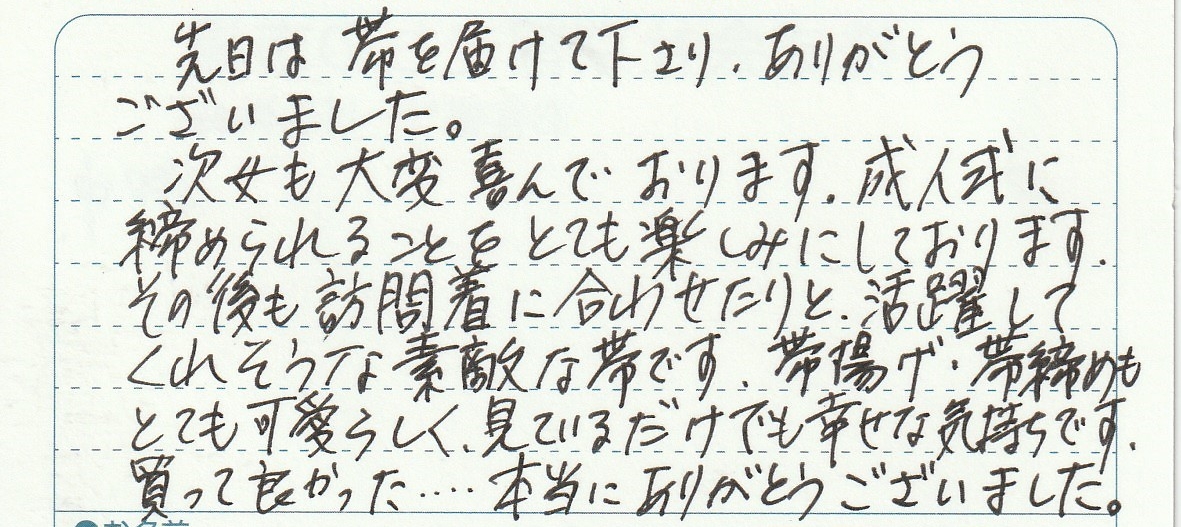 先日は 帯を届けて下さり、ありがとう
ございました。
次女も大変喜んでおります。成人式に
締められることをとても楽しみにしております。
その後も訪問着に合わせたりと、活躍して
くれそうな素敵な帯です。帯揚げ・帯締めも
とても可愛らしく、見ているだけでも幸せな気持ちです。
買って良かった‥‥本当にありがとうございました。